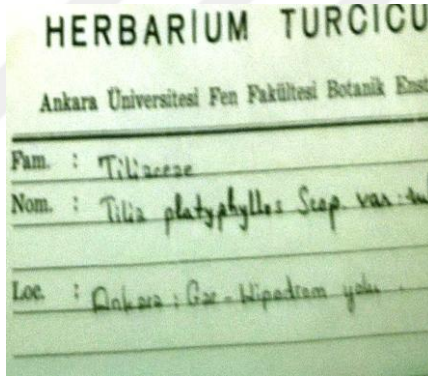 HERBARİUM TURCICU
Ankara Üniversitesi Fen Fakültesi Botanik Enst
Fam. : Tiliaceae
Nom. : Tilia platyphyllos Scop. var.
Loc. : Ankara : Gar - Hipodrom yolu .